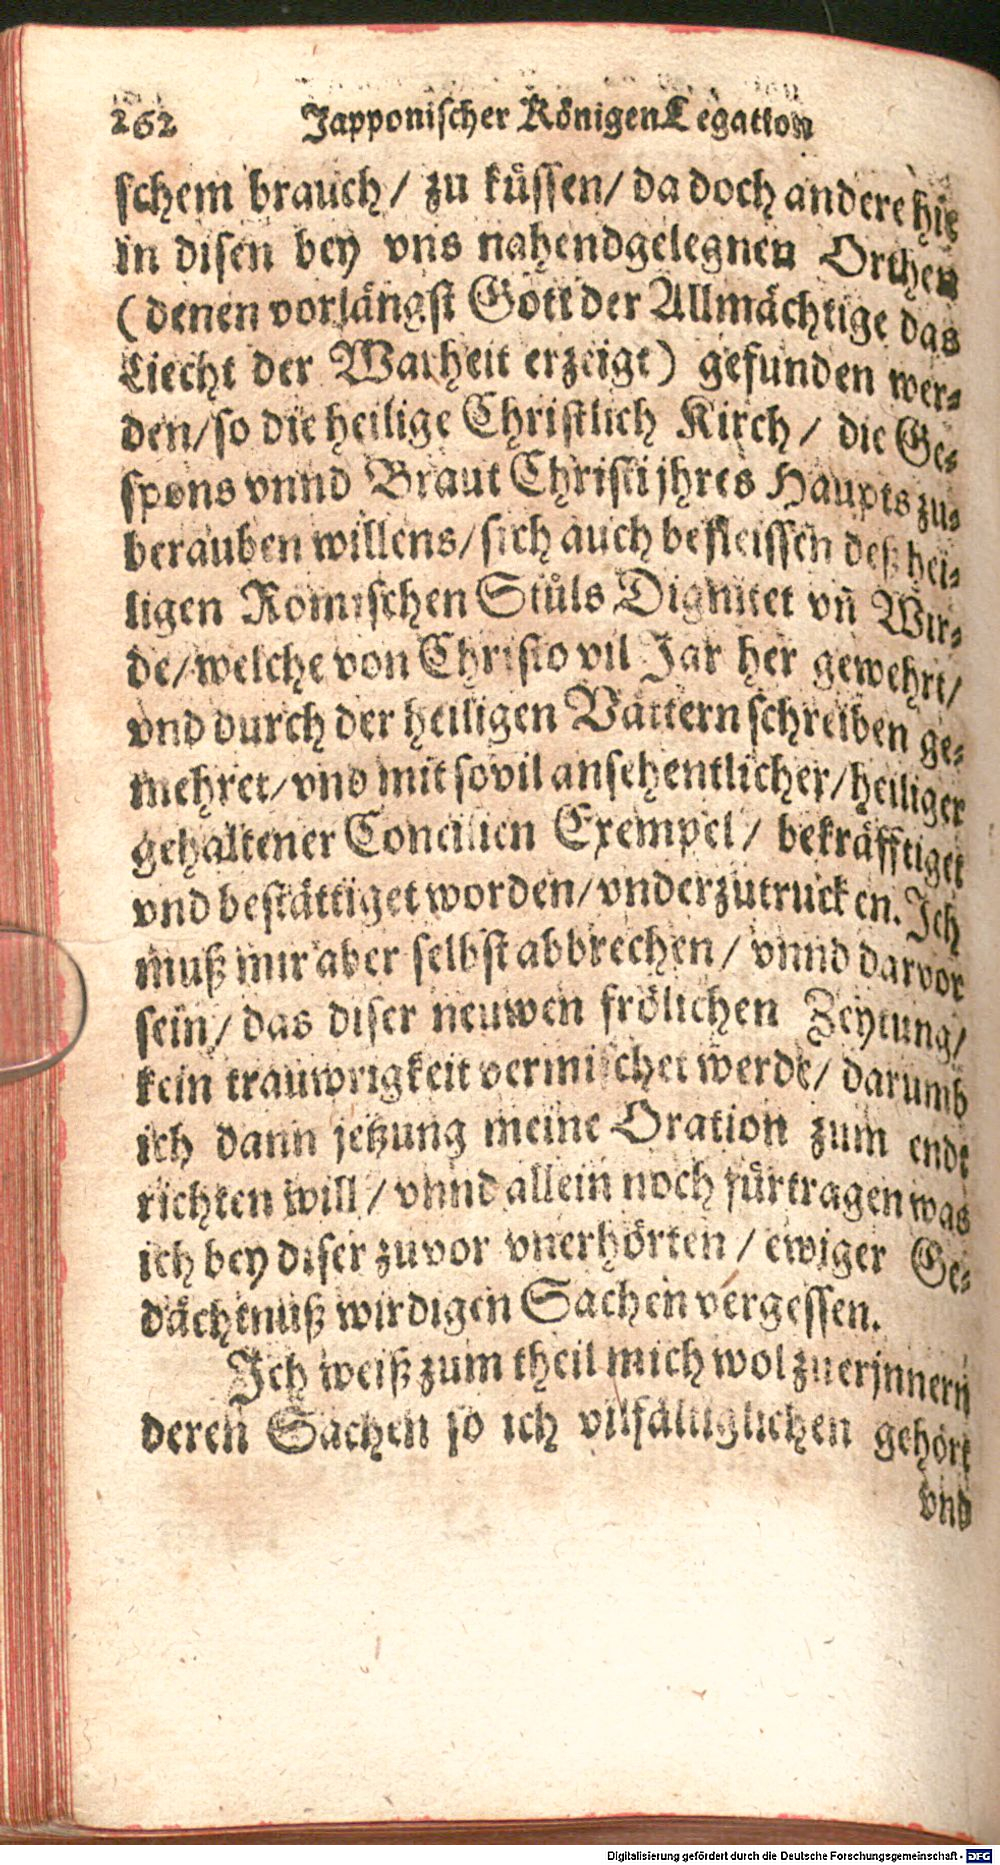 262 Japponischer Königen Legation
schem brauch/ zu küssen/ da doch andere hie
in disen bey vns nahendgelegnen Orthen
(denen vorlängst Gott der Allmächtige das
Liecht der Warheit erzeigt) gefunden wer-
den/ so die heilige Christlich Kirch/ die Ge-
spons vnnd Braut Christi jhres Haupts zu-
berauben willens/ sich auch befleissen deß hei-
ligen Römischen Stůls Dignitet vn̄ Wir-
de/ welche von Christo vil Jar her gewehrt/
vnd durch der heiligen Vättern schreiben ge-
mehret/ vnd mit sovil ansehentlicher/ heiliger
gehaltener Concilien Exempel/ bekräfftiget
vnd bestättiget worden/ vnderzutrucken. Ich
muß mir aber selbst abbrechen/ vnnd darvor
sein/ das diser neuwen frölichen Zeytung/
kein trauwrigkeit vermischet werde/ darumb
ich dann jetzung meine Oration zum ende
richten will/ vnnd allein noch fürtragen was
ich bey diser zuvor vnerhörten/ ewiger Ge-
dächtnuß wirdigen Sachen vergessen.
Ich weiß zum theil mich wol zuerjnnern
deren Sachen so ich vilfältiglichen gehört
vnd
Digitalisierung gefördert durch die Deutsche Forschungsgemeinschaft - DFG